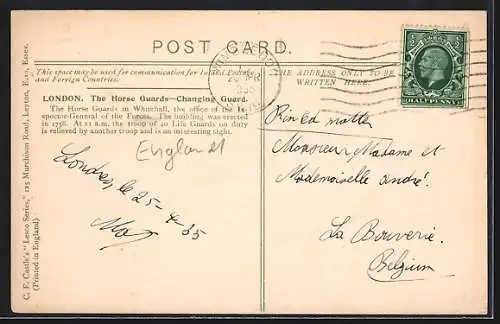 POST CARD.
This space may be used for communication for Inland Postage
and Foreign Countries.
THE ADDRESS ONLY TO BE
WRITTEN HERE.
LONDON. The Horse Guards—Changing Guard.
The Horse Guards in Whitehall, the office of the In-
spector-General of the Forces. The building was erected
in 1756. At 11 a.m. the troop of 20 Life Guards on duty
is relieved by another troop and is an interesting sight.
England
Londres, le 25-4-35
C. F. Castle's "Lesco Series," 125 Murchison Road, Leyton, E.10, Essex.
(Printed in England)
HALFPENNY
Printed matter
Monsieur, Madame et
Mademoiselle André.
La Bouverie.
Belgium